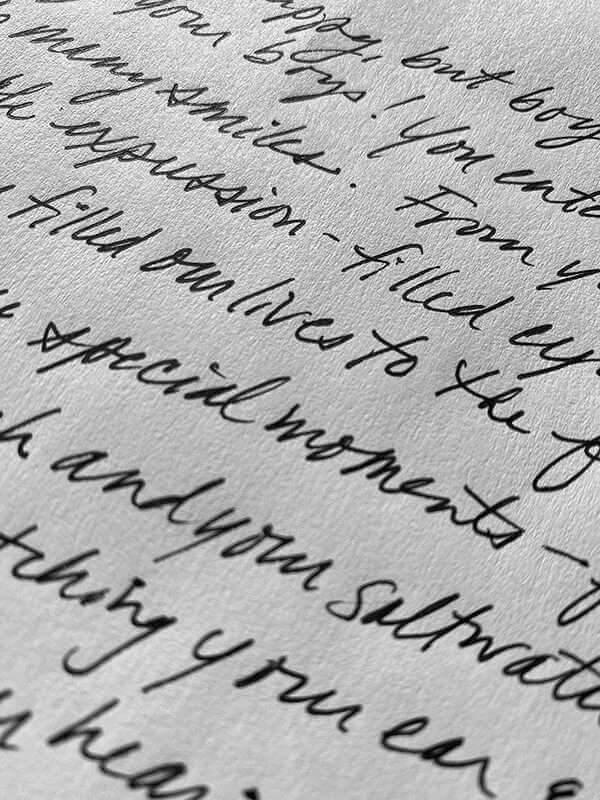 appy, but boy
your boys! You ente
many smiles. From y
expression - filled ey
filled our lives to the f
special moments - f
h and your saltwat
tching your ear
hear